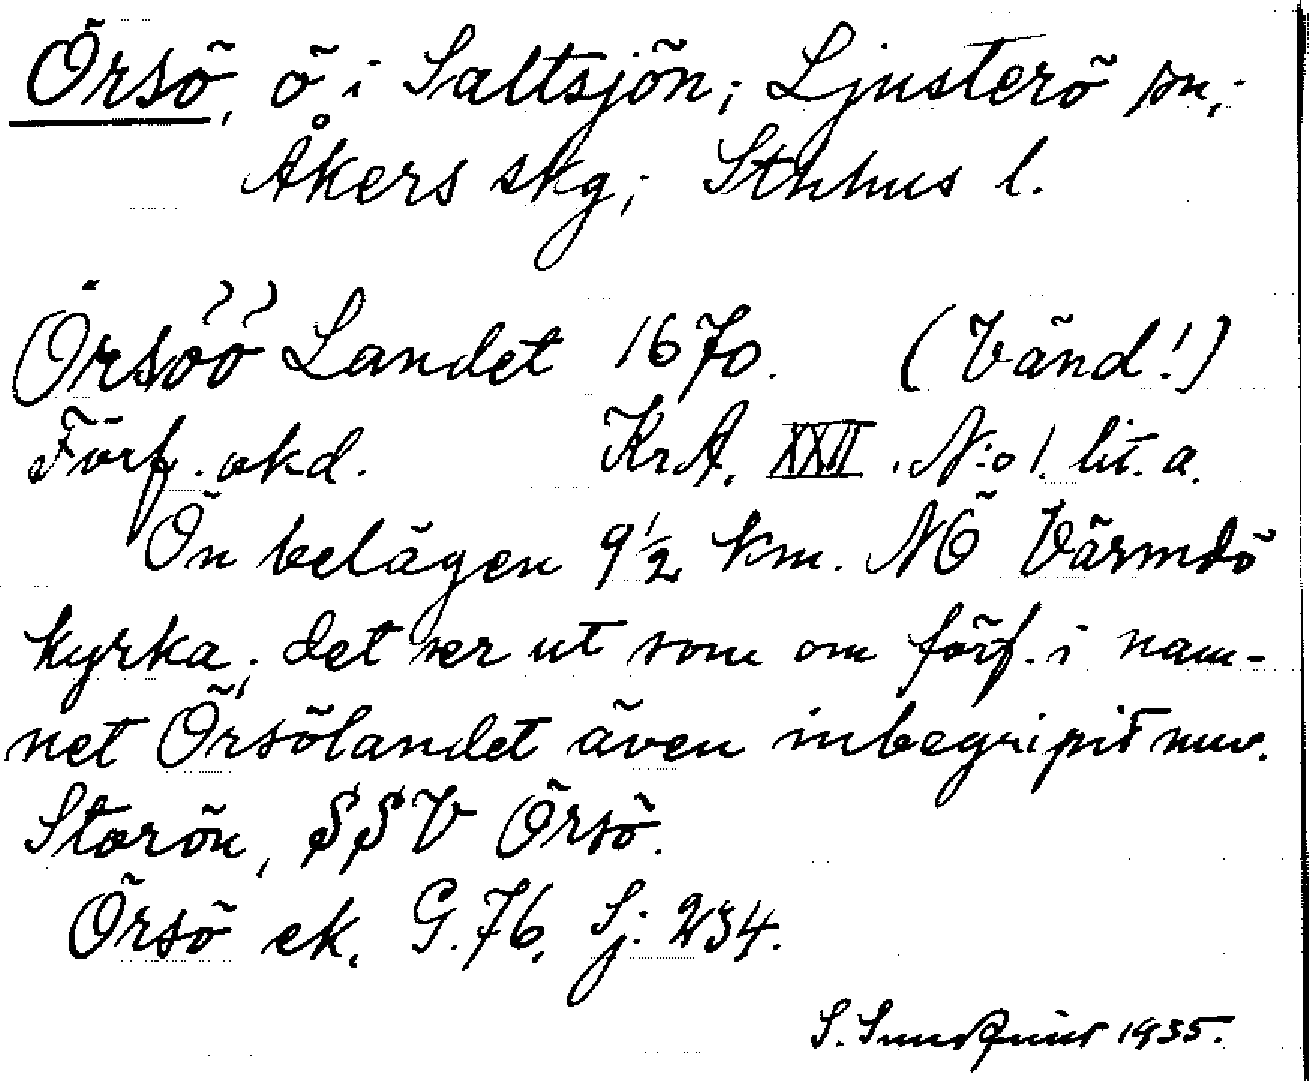 Örsö, ö i Saltsjön; Ljusterö sn,;
Åkers skg; Sthhus l.
Örsöö Landet 1670. (Vänd!)
Förf. okd. KrA. XXII. N:o 1. lit. a.
Ön belägen 9½ km. NÖ Värmdö
kyrka; det ser ut som om förf. i nam-
net Örsölandet även inbegripit nuv.
Storön, SSV Örsö.
Örsö ek. G.76. Sj. 234.
S. Sundquist 1935.